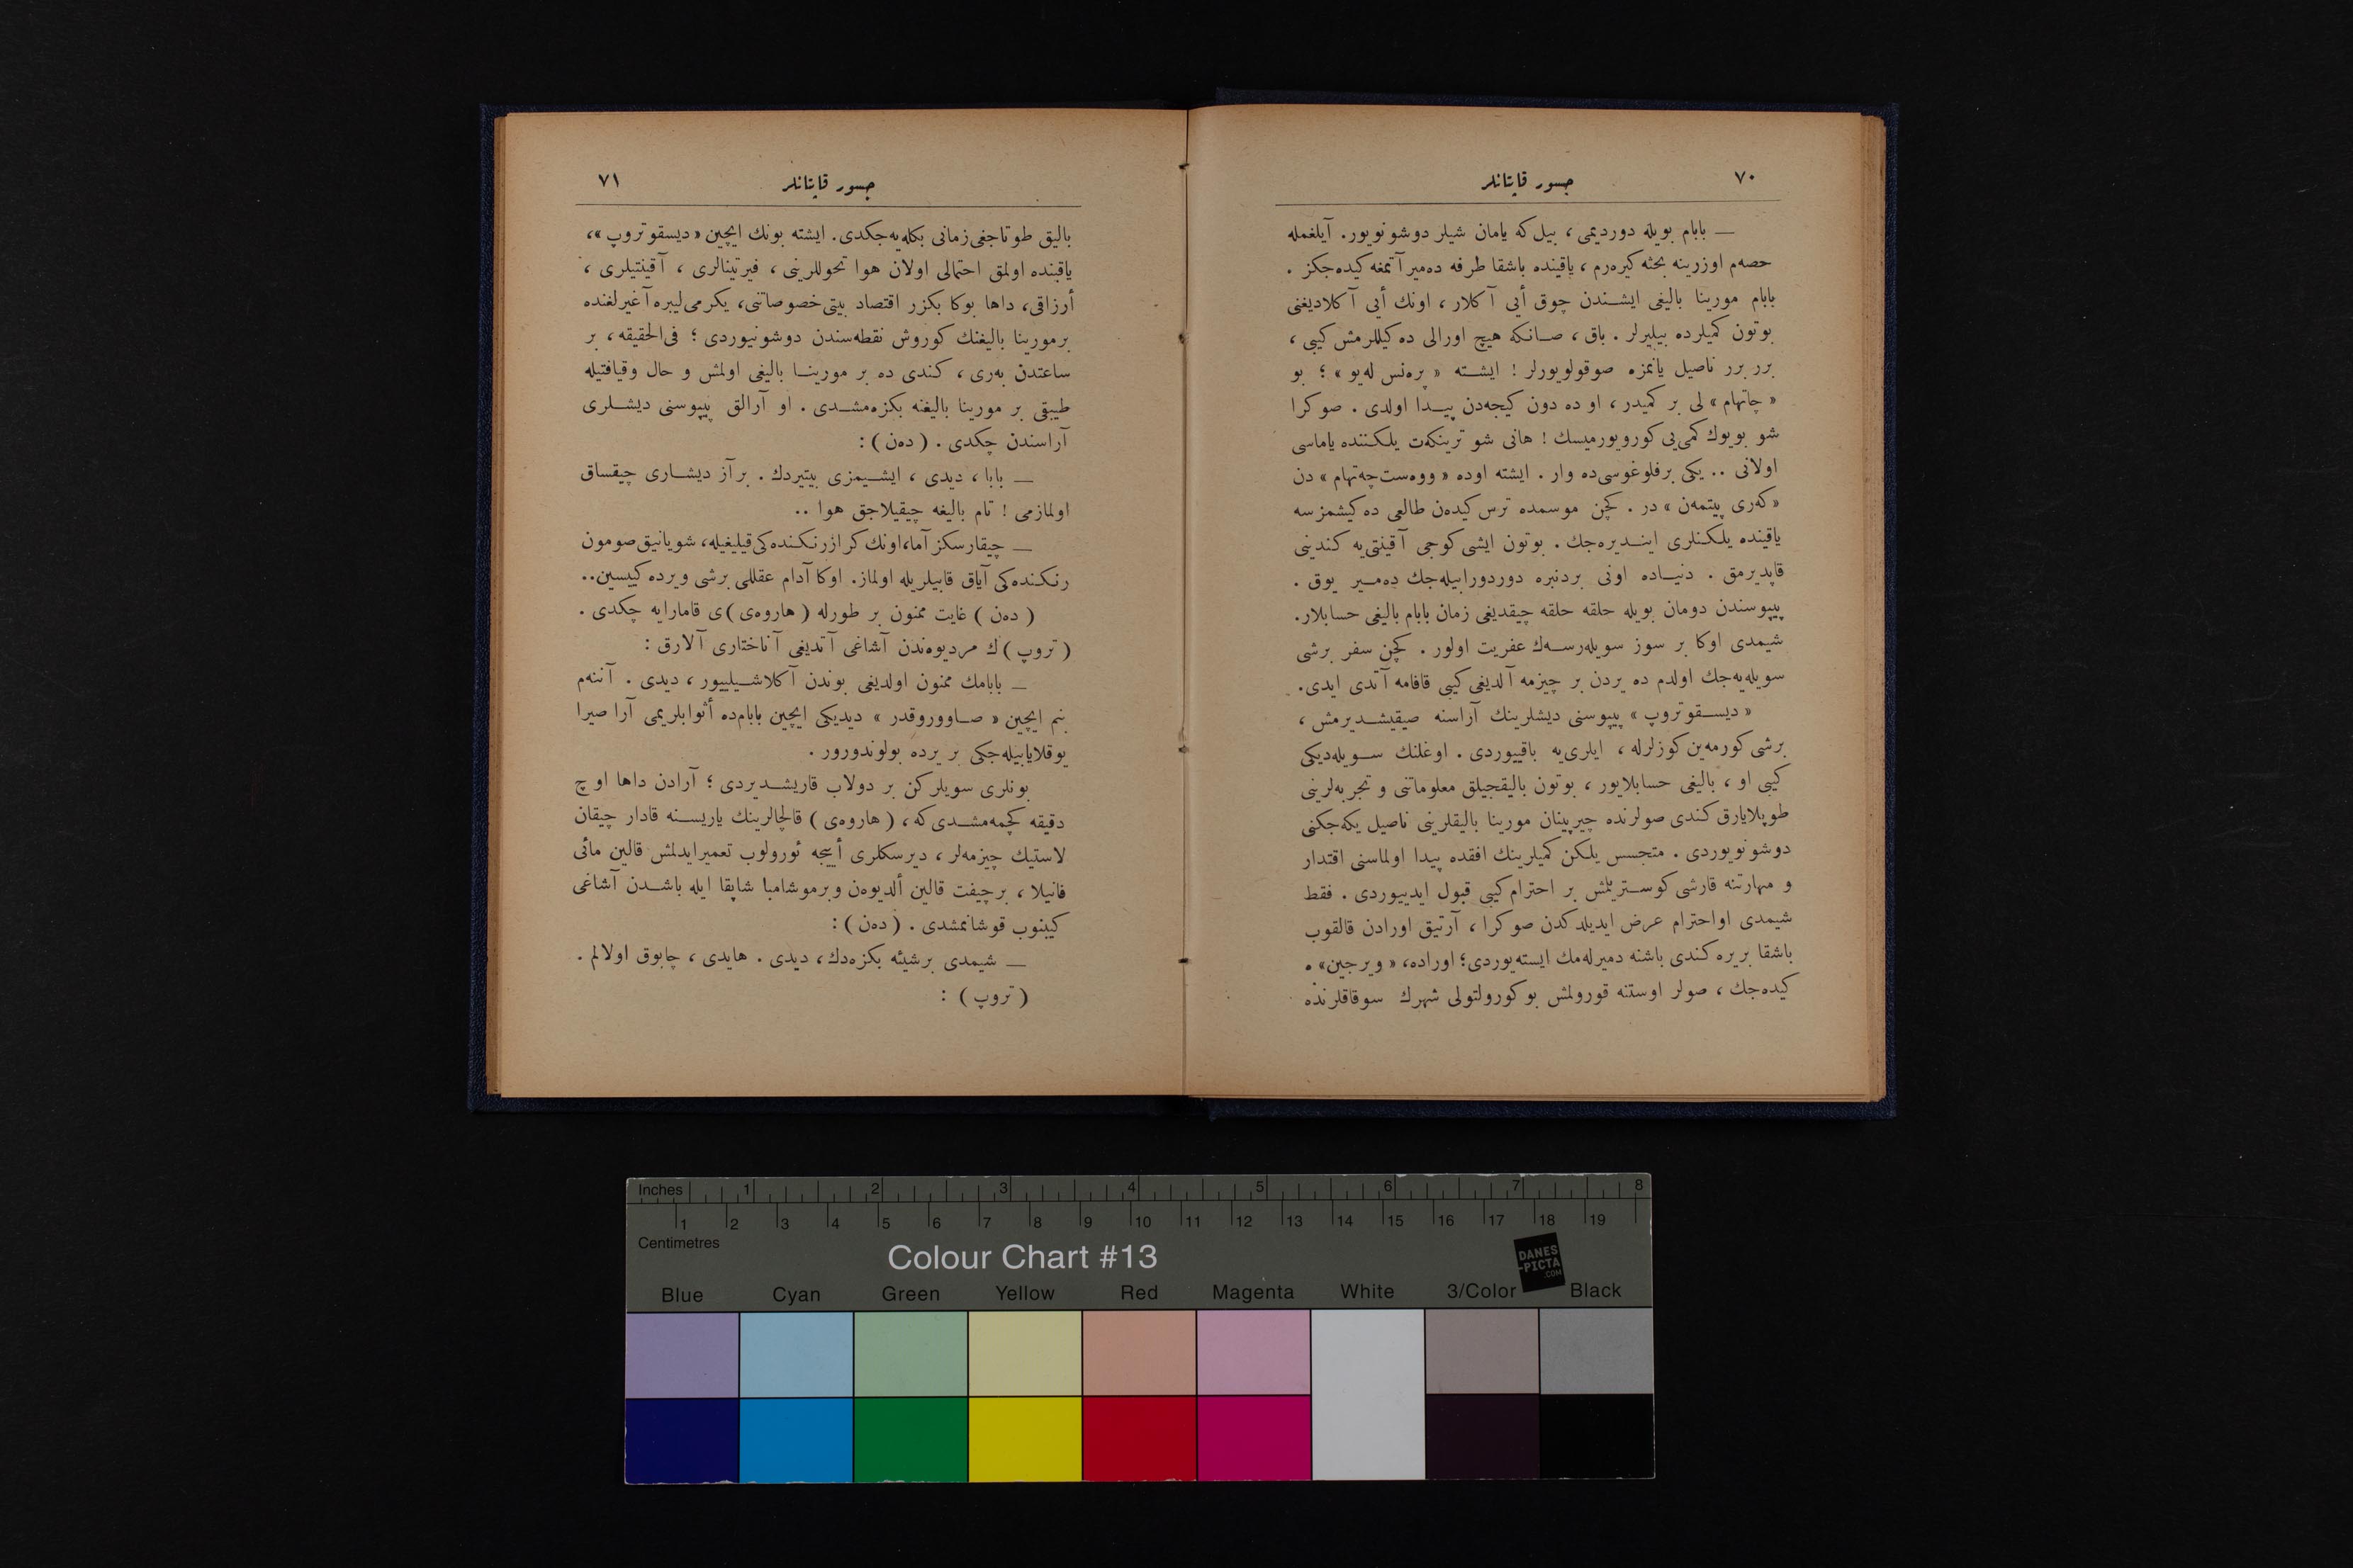 ٧٠
جسور قاپتانلر
— بابام بویله دوردیمی ، بیل که یامان شیلر دوشونویور. آیلغمله
حصه‌م اوزرینه بحثه کیره‌رم ، یاقینده باشقا طرفه ده‌میر آتمغه کیده‌جکز .
بابام مورینا بالیغی ایشندن چوق أیی آکلار ، اونك أیی آکلادیغنی
بوتون کمیلرده بیلیرلر . باق ، صانکه هیچ اورالی ده‌کیللرمش کیبی ،
برر برر ناصیل یانمزه صوقولویورلر ! ایشته « پره‌نس له‌یو » ؛ بو
« چاتهام » لی بر کمیدر ، او ده دون کیجه‌دن پیدا اولدی . صوکرا
شو بویوك کمی‌یی کورویورمیسك ! هانی شو ترینکه‌ت یلکننده یاماسی
اولانی .. یکی برفلوغوسی‌ده وار . ایشته اوده « ووه‌ست چه‌تهام » دن
« که‌ری پیتمه‌ن » در . کچن موسمده ترس کیده‌ن طالعی ده‌کیشمزسه
یاقینده یلکنلری ایندیره‌جك . بوتون ایشی کوجی آقینتی‌یه کندینی
قاپدیرمق . دنیاده اونی بردنبره دوردورابیله‌جك ده‌میر یوق .
پیپوسندن دومان بویله حلقه حلقه چیقدیغی زمان بابام بالیغی حسابلار.
شیمدی اوکا بر سوز سویله‌رسه‌ك عفریت اولور . کچن سفر برشی
سویله‌یه‌جك اولدم ده یردن بر چیزمه آلدیغی کیبی قافامه آتدی ایدی.
« دیسقو تروپ » پیپوسنی دیشلرینك آراسنه صیقیشدیرمش ،
برشی کورمه‌ین کوزلرله ، ایلری‌یه باقییوردی . اوغلنك سویله‌دیکی
کیبی او ، بالیغی حسابلایور ، بوتون بالیقجیلق معلوماتنی و تجربه‌لرینی
طوپلایارق کندی صولرنده چیرپینان مورینا بالیقلرینی ناصیل یکه‌جکنی
دوشونویوردی . متجسس یلکن کمیلرینك افقده پیدا اولماسنی اقتدار
و مهارتنه قارشی کوستریلمش بر احترام کیبی قبول ایدییوردی . فقط
شیمدی اواحترام عرض ایدیلدکدن صوکرا ، آرتیق اورادن قالقوب
باشقا بریره کندی باشنه دمیرله‌مك ایسته‌یوردی؛ اوراده، « ویرجین» ه
کیده‌جك ، صولر اوستنه قورولمش بو کورولتولی شهرك سوقاقلرنده
٧١
جسور قاپتانلر
بالیق طوتاجغی زمانی بکله‌یه‌جکدی. ایشته بونك ایچین « دیسقو تروپ »،
یاقینده اولمق احتمالی اولان هوا تحوللرینی ، فیرتینالری ، آقینتیلری ،
أرزاقی، داها بوکا بکزر اقتصاد بیتی خصوصاتنی، یکرمی‌لیبره آغیرلغنده
برمورینا بالیغنك کوروش نقطه‌سندن دوشونیوردی ؛ فی‌الحقیقه ، بر
ساعتدن به‌ری ، کندی ده بر مورینا بالیغی اولمش و حال وقیافتیله
طیبقی بر مورینا بالیغنه بکزه‌مشدی . او آرالق پیپوسنی دیشلری
آراسندن چکدی . ( ده‌ن ) :
— بابا ، دیدی ، ایشیمزی بیتیردك . برآز دیشاری چیقساق
اولمازمی ! تام بالیغه چیقیلاجق هوا ..
— چیقارسکز آما،اونك کرازرنکنده‌کی قیلیغیله، شویانیق صومون
رنکنده‌کی آیاق قابیلریله اولماز. اوکا آدام عقللی برشی ویرده کییسین..
( ده‌ن ) غایت ممنون بر طورله ( هاروه‌ی )ی قامارایه چکدی .
( تروپ )ك مردیوه‌ندن آشاغی آتدیغی آناختاری آلارق :
— بابامك ممنون اولدیغی بوندن آکلاشیلییور ، دیدی . آننه‌م
بنم ایچین « صاووروقدر » دیدیکی ایچین بابام‌ده أثوابلریمی آرا صیرا
یوقلایابیله‌جکی بر یرده بولوندورور .
بونلری سویلرکن بر دولاب قاریشدیردی ؛ آرادن داها اوچ
دقیقه کچمه‌مشدی‌که ، ( هاروه‌ی ) قالچالرینك یاریسنه قادار چیقان
لاستیك چیزمه‌لر ، دیرسکلری أییجه ئورولوب تعمیرایدلمش قالین مائی
فانیلا ، برچیفت قالین ألدیوه‌ن وبرموشامبا شاپقا ایله باشدن آشاغی
کیینوب قوشانمشدی . ( ده‌ن ) :
— شیمدی برشیئه بکزه‌دك ، دیدی . هایدی ، چابوق اولالم .
( تروپ ) :
Inches 1 2 3 4 5 6 7 8
1 2 3 4 5 6 7 8 9 10 11 12 13 14 15 16 17 18 19
Centimetres
Colour Chart #13
DANES
-PICTA
.COM
Blue Cyan Green Yellow Red Magenta White 3/Color Black